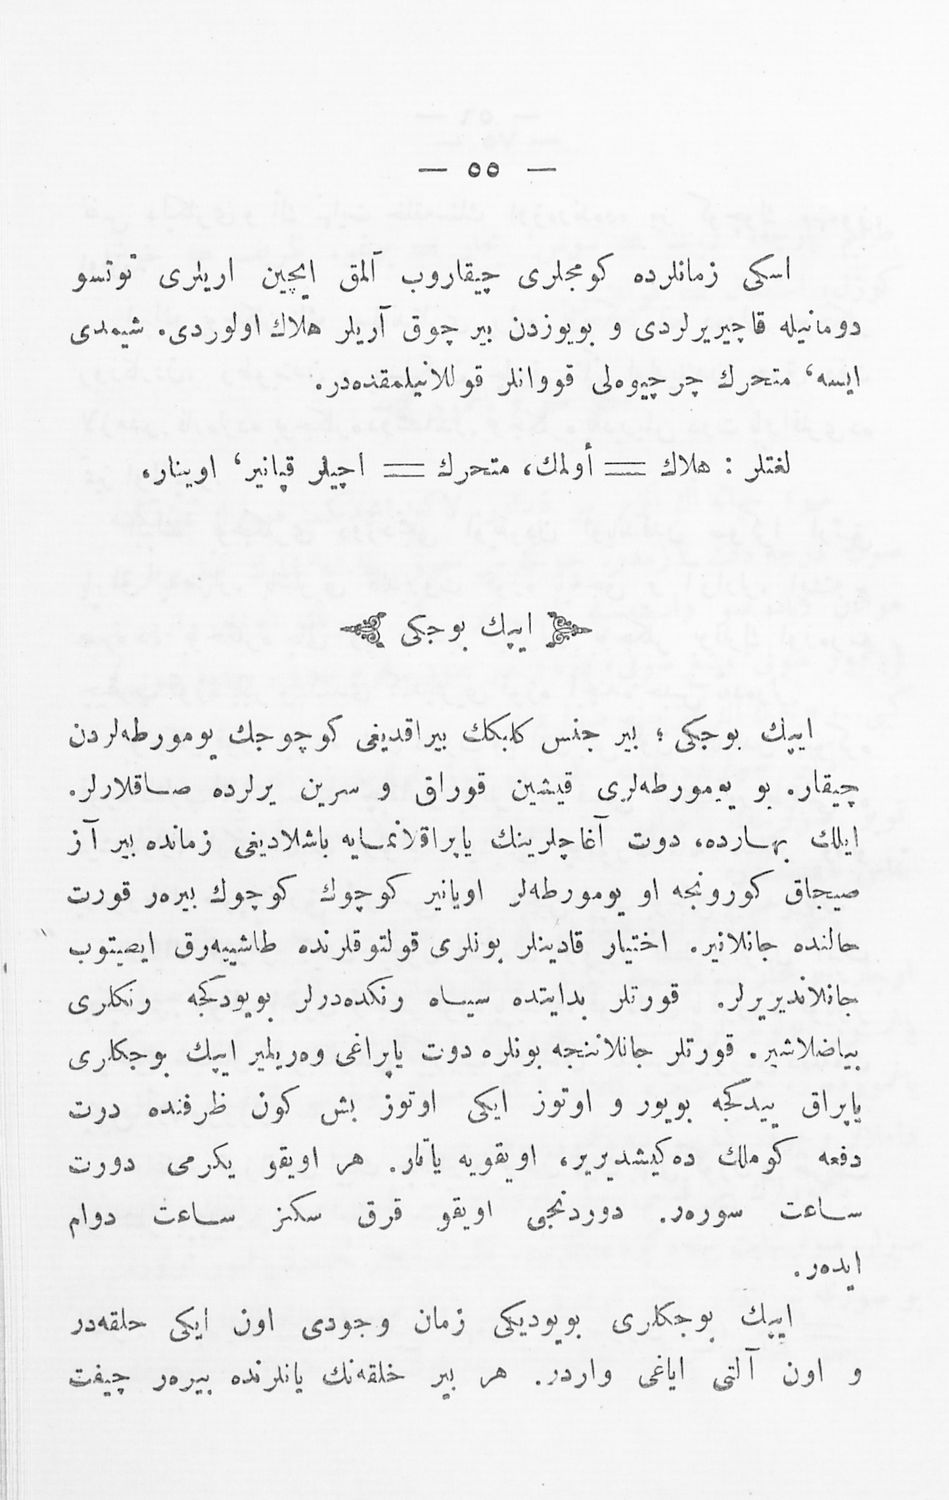 — ٥٥ —
اسكی زمانلرده كومجلری چیقاروب آلمق ایچین اریلری توتسو
دومانیله قاچیریرلردی و بویوزدن بیر چوق آریلر هلاك اولوردی. شیمدی
ایسه، متحرك چرچیوه‌لی قووانلر قوللانیلمقده‌در.
لغتلر : هلاك = أولمك، متحرك = اچیلر قپانیر، اوینار،
ایپك بوجكی
ایپك بوجكی ؛ بیر جنس كلبكك بیراقدیغی كوچوجك یومورطه‌لردن
چیقار. بو یومورطه‌لری قیشین قوراق و سرین یرلرده صاقلارلر.
ایلك بهارده، دوت آغاچلرینك یاپراقلانمایه باشلادیغی زمانده بیر آز
صیجاق كورونجه او یومورطه‌لر اویانیر كوچوك كوچوك بیره‌ر قورت
حالنده جانلانیر. اختیار قادینلر بونلری قولتوقلرنده طاشییه‌رق ایصیتوب
جانلاندیریرلر. قورتلر بدایتده سیاه رنكده‌درلر بویودكجه رنكلری
بیاضلاشیر. قورتلر جانلاننجه بونلره دوت یاپراغی وه‌ریلیر ایپك بوجكلری
یاپراق ییدكجه بویور و اوتوز ایكی اوتوز بش كون ظرفنده درت
دفعه كوملك ده‌كیشدیریر، اویقویه یاتار. هر اویقو یكرمی دورت
ساعت سوره‌ر. دوردنجی اویقو قرق سكز ساعت دوام
ایده‌ر.
ایپك بوجكلری بویودیكی زمان وجودی اون ایكی حلقه‌در
و اون آلتی ایاغی واردر. هر بیر خلقه‌نك یانلرنده بیره‌ر چیفت